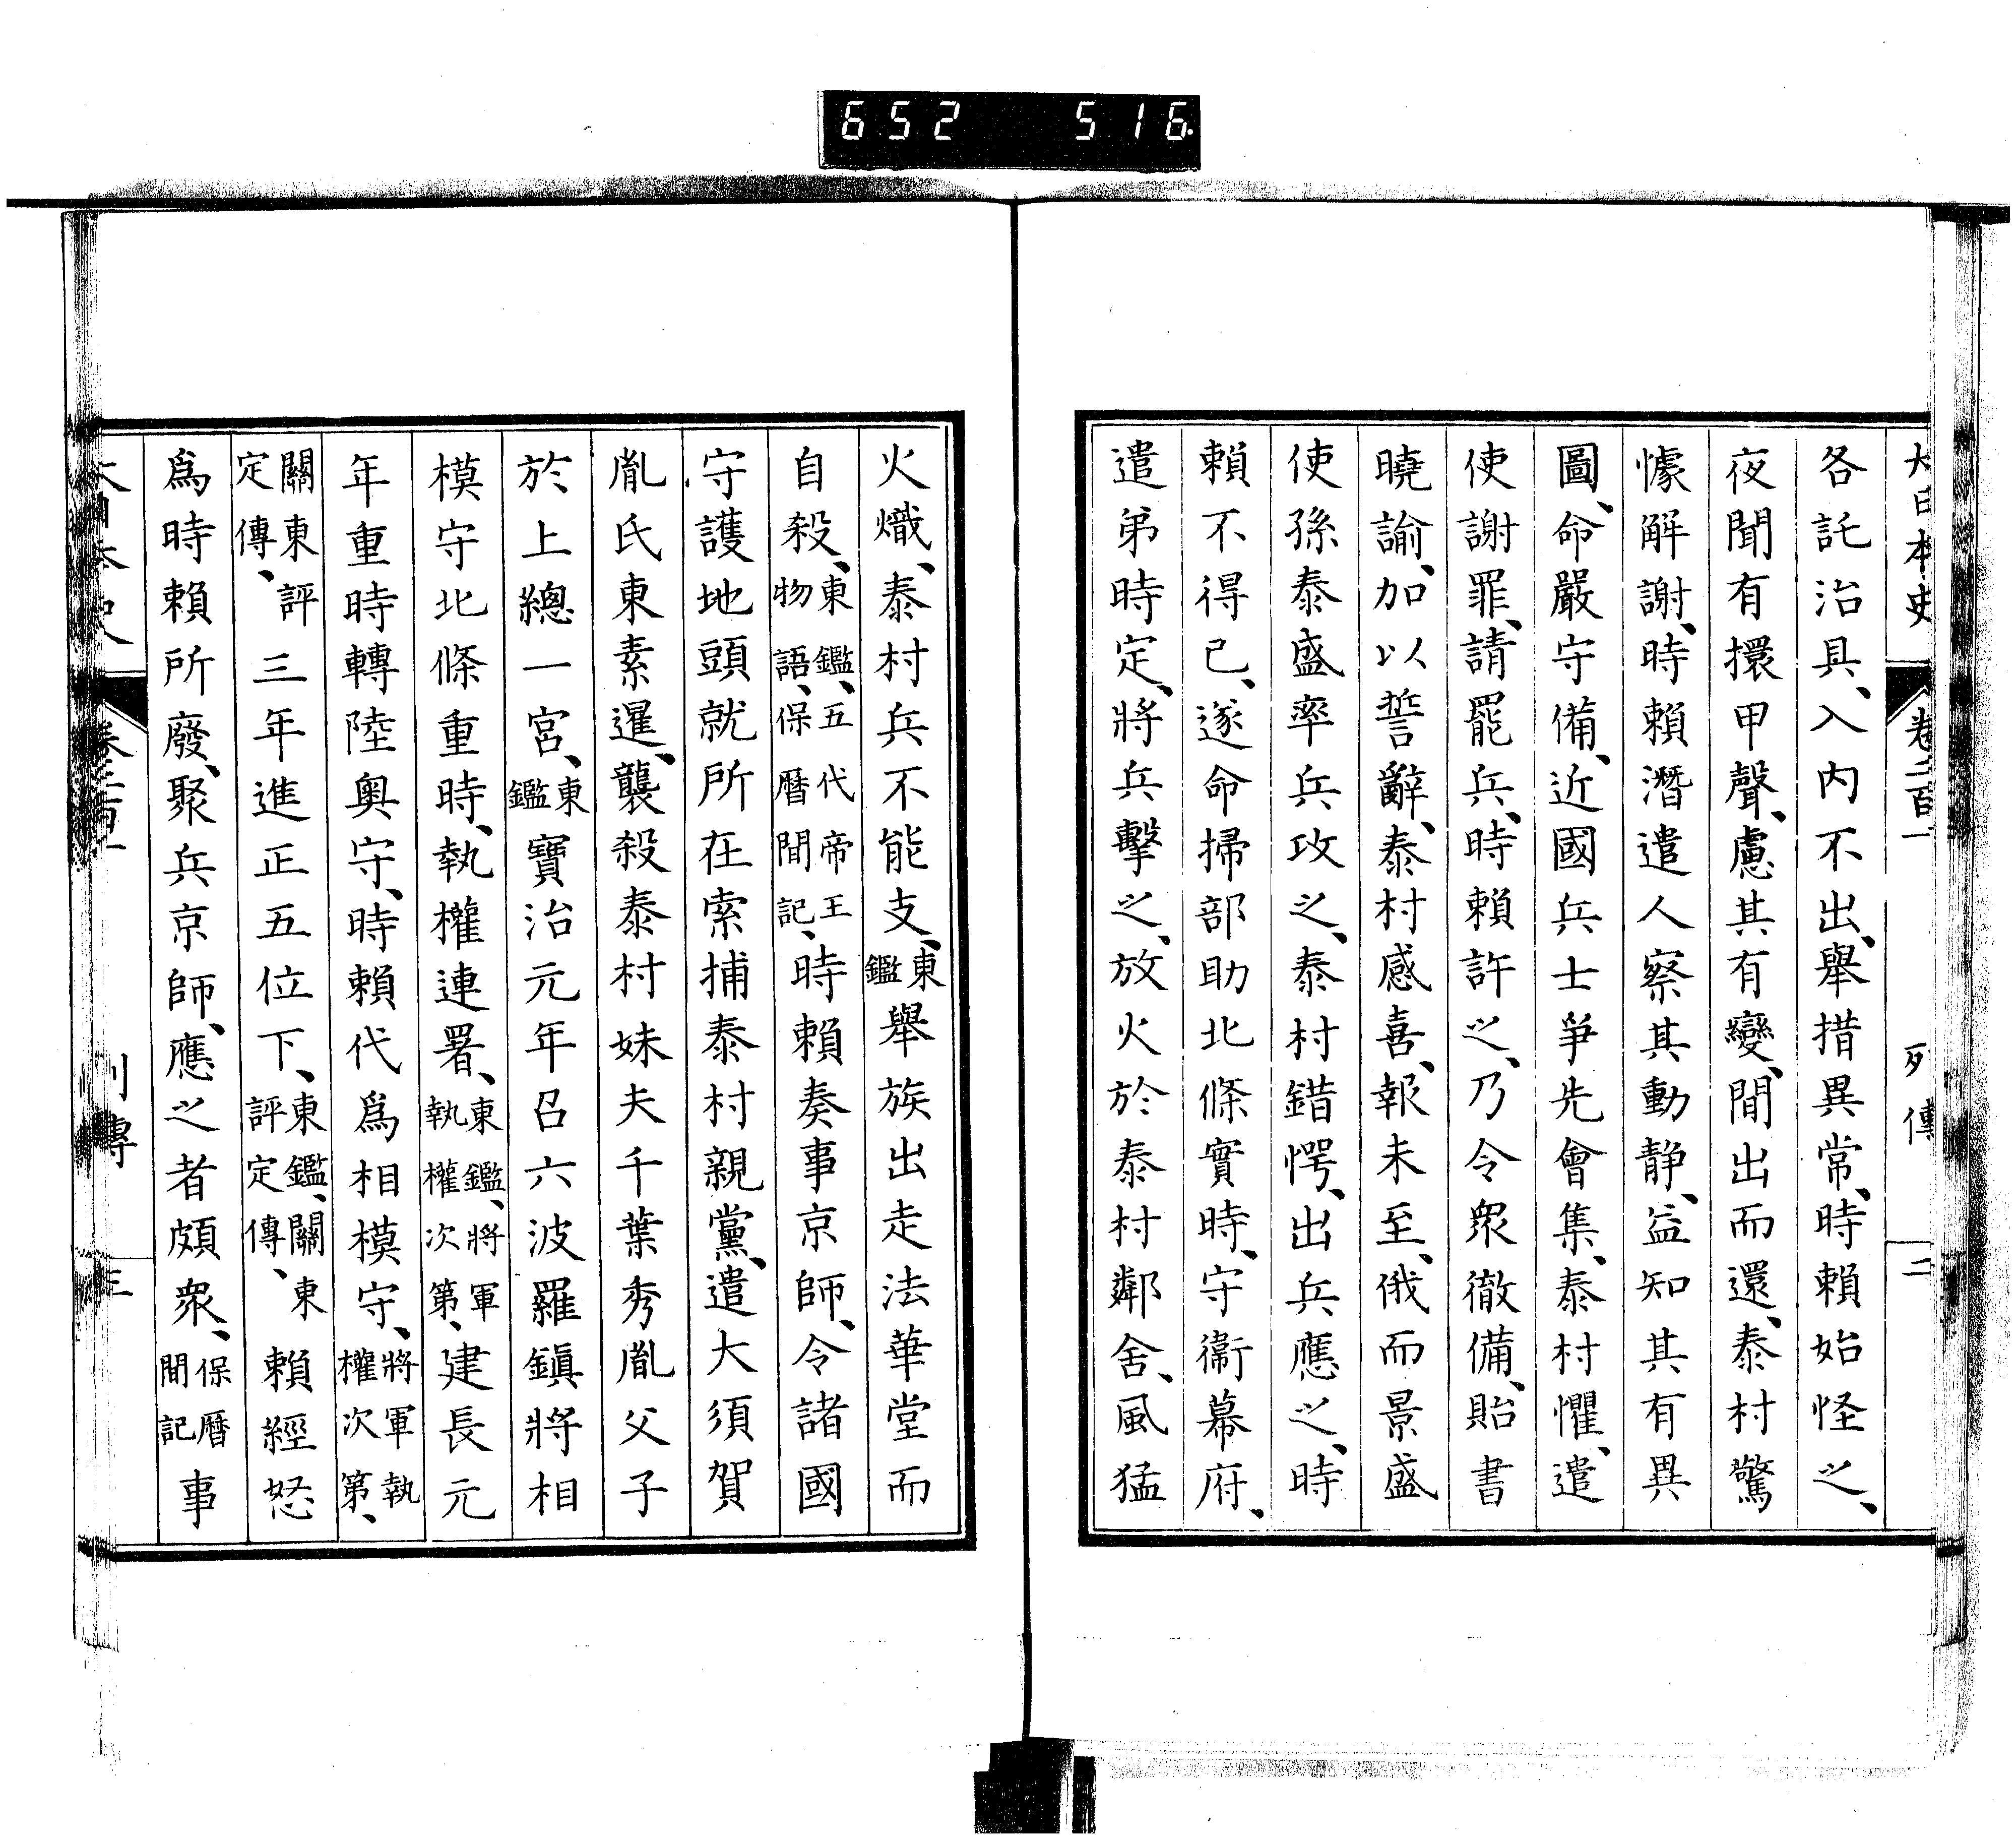 652 516
大日本史 卷二百一 列傳 二
各託治具、入内不出、舉措異常、時賴始怪之、
夜聞有擐甲聲、慮其有變、間出而還、泰村驚
懅解謝、時賴潛遣人察其動静、益知其有異
圖、命嚴守備、近國兵士爭先會集、泰村懼、遣
使謝罪、請罷兵、時賴許之、乃令衆徹備、貽書
曉諭、加以誓辭、泰村感喜、報未至、俄而景盛
使孫泰盛率兵攻之、泰村錯愕、出兵應之、時
賴不得已、遂命掃部助北條實時、守衞幕府、
遣弟時定、將兵擊之、放火於泰村鄰舍、風猛
火熾、泰村兵不能支、東鑑舉族出走法華堂而
自殺、東鑑、五代帝王物語、保曆間記、時賴奏事京師、令諸國
守護地頭就所在索捕泰村親黨、遣大須賀
胤氏東素暹、襲殺泰村妹夫千葉秀胤父子
於上總一宮、東鑑寶治元年召六波羅鎭將相
模守北條重時、執權連署、東鑑、將軍執權次第、建長元
年重時轉陸奥守、時賴代爲相模守、將軍執權次第、
關東評定傳、三年進正五位下、東鑑、關東評定傳、賴經怒
爲時賴所廢、聚兵京師、應之者頗衆、保曆間記事
大日本史 卷二百一 列傳 三